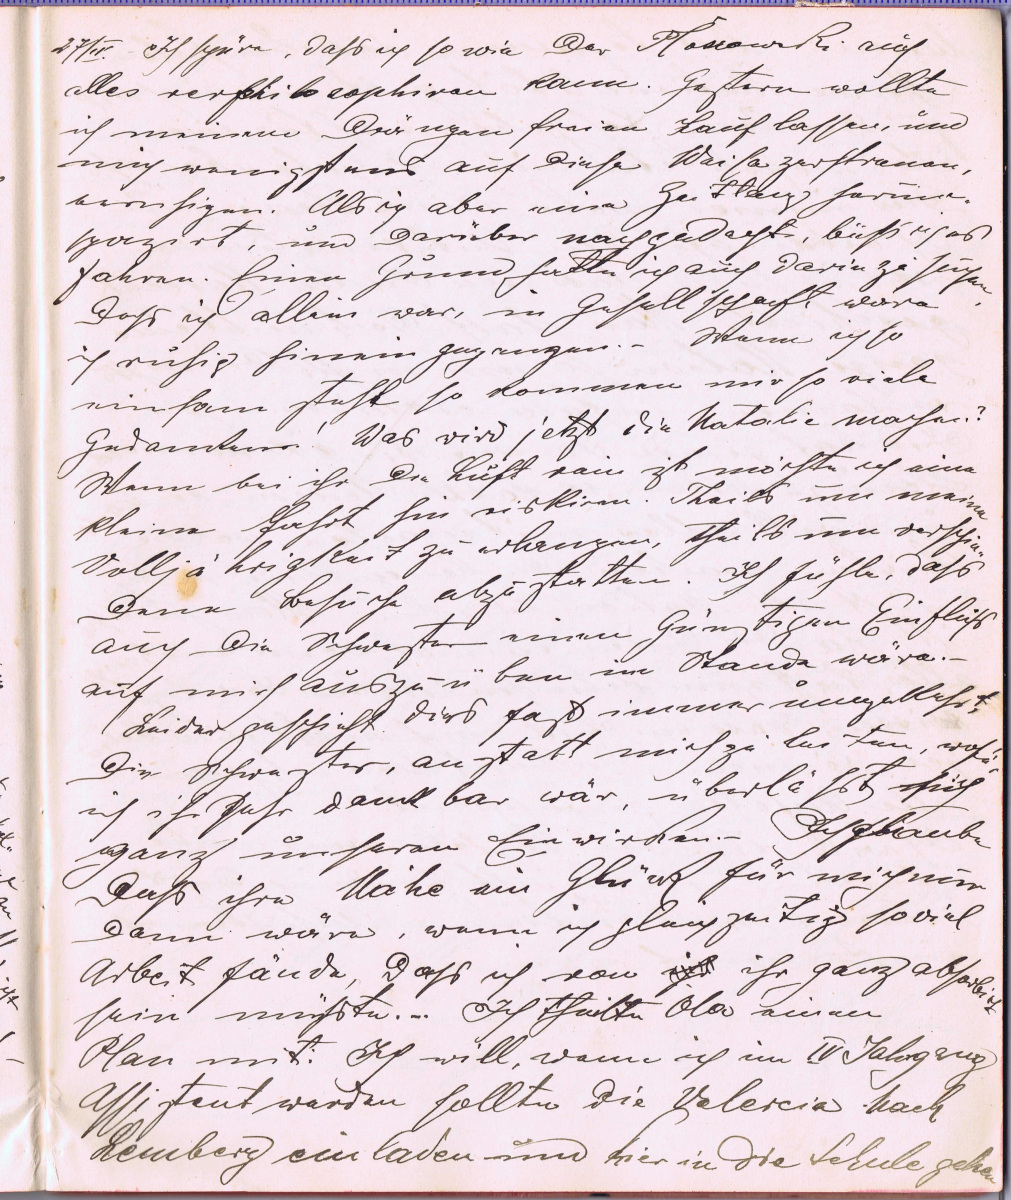 27/IV. Ich spüre, dass ich so wie der auch
alles verphilosophiren kann. Gestern wollte
ich meinem Drängen freien Lauf lassen, und
mich wenigstens auf diese Weise zerstreuen,
beruhigen. Als ich aber eine Zeitlang herum-
spaziert, und darüber nachgedacht, liess ich es
fahren. Einen Grund hatte ich auch darin zu suchen,
dass ich allein war, in Gesellschaft wäre
ich ruhig hineingegangen. – Wenn ich so
einsam steh so kommen mir so viele
Gedanken! Was wird jetzt die Natalie machen?
Wenn bei ihr die Luft rein ist möchte ich eine
kleine Fahrt hin riskiren. Theils um meine
Volljährigkeit zu erlangen, theils um verschie-
dene Besuche abzustatten. Ich fühle, dass
auch die Schwester einen günstigen Einfluss
auf mich auszuüben im Stande wäre. –
Leider geschieht dies fast immer umgekehrt,
Die Schwester, anstatt mich zu leiten, wofür
ich ihr sehr dankbar wär, überlässt sich
ganz unserem Einwirken. – Ich glaube
Dass ihre Nähe ein Glück für mich nur
dann wäre, wenn ich gleichzeitig soviel
Arbeit fände, Dass ich von ihr ganz absorbirt
sein müsste. – Ich theilte Ola einen
Plan mit: Ich will, wenn ich im IV Jahrgang
Assistent werden sollte die Valercia nach
Lemberg einladen und hier in die Schule gehen